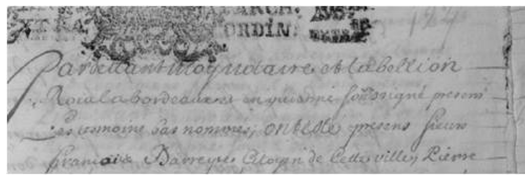 ORDIN
Pardevant moy notaire et tabellion
Royal a bordeaux en guienne soussigné presens
les temoins bas nommes, ont esté presens sieurs
françois Barreyre Citoyen de cette ville, Pierre